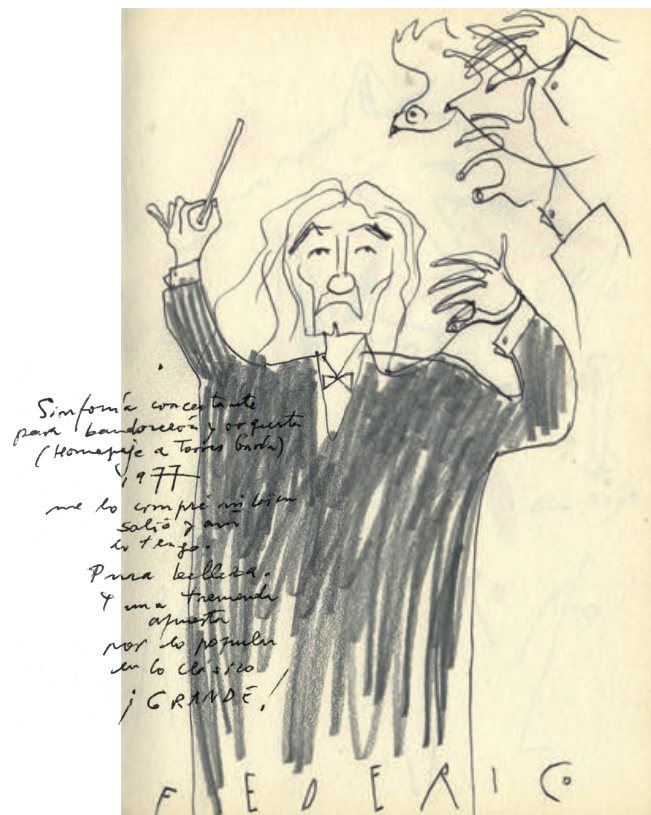 Sinfonía concertante
para bandoneón y orquesta
(Homenaje a Torres García)
1977
me lo compré ni bien
salió y aún
lo tengo.
Pura belleza.
Y una tremenda
apuesta
por lo popular
en lo clásico
¡GRANDE!
FEDERICO